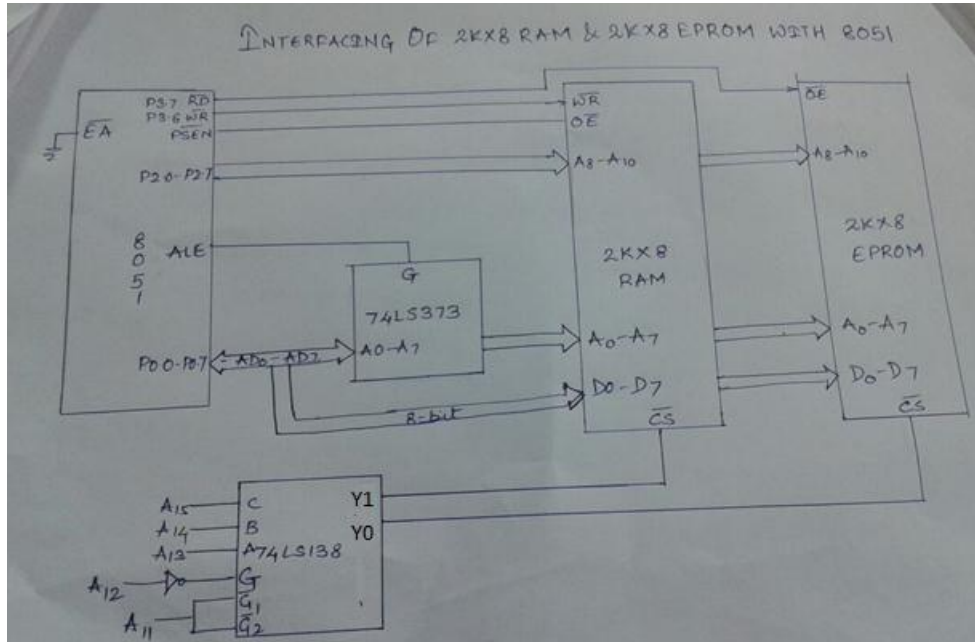 INTERFACING OF 2KX8 RAM & 2KX8 EPROM WITH 8051
P3.7 RD
P3.6 WR
PSEN
EA
P2.0-P2.7
8
0
5
1
ALE
P0.0-P0.7
AD0-AD7
G
74LS373
A0-A7
8-bit
WR
OE
A8-A10
2KX8
RAM
A0-A7
D0-D7
CS
OE
A8-A10
2KX8
EPROM
A0-A7
D0-D7
CS
A15
A14
A13
A12
A11
C
B
A 74LS138
G
G1
G2
Y1
Y0